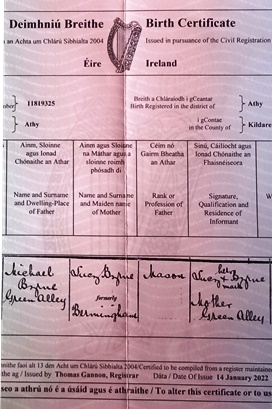 Deimhniú Breithe Birth Certificate
an Achta um Chlárú Sibhialta 2004 Issued in pursuance of the Civil Registration
Éire Ireland
11819325 Breith a Chláraíodh i gCeantar
Birth Registered in the district of Athy
Athy i gContae
in the County of Kildare
Ainm, Sloinne
agus Ionad
Chónaithe an Athar
Name and Surname
and Dwelling-Place
of Father
Ainm agus Sloinne
na Máthar agus a
sloinne roimh
phósadh di
Name and Surname
and Maiden name
of Mother
Céim nó
Gairm Bheatha
an Athar
Rank or
Profession of
Father
Síniú, Cáilíocht agus
Ionad Chónaithe an
Fhaisnéiseora
Signature,
Qualification and
Residence of
Informant
Michael
Byrne
Green Alley
Lucy Byrne
formerly
Bermingham
Mason
Lucy Byrne
her
mark
Mother
Green Alley
faoi alt 13 den Acht um Chlárú Sibhialta 2004/Certified to be compiled from a register maintained
ag / Issued by Thomas Gannon, Registrar Dáta / Date Of Issue 14 January 2022
seo a athrú nó é a úsáid agus é athraithe / To alter this certificate or to us